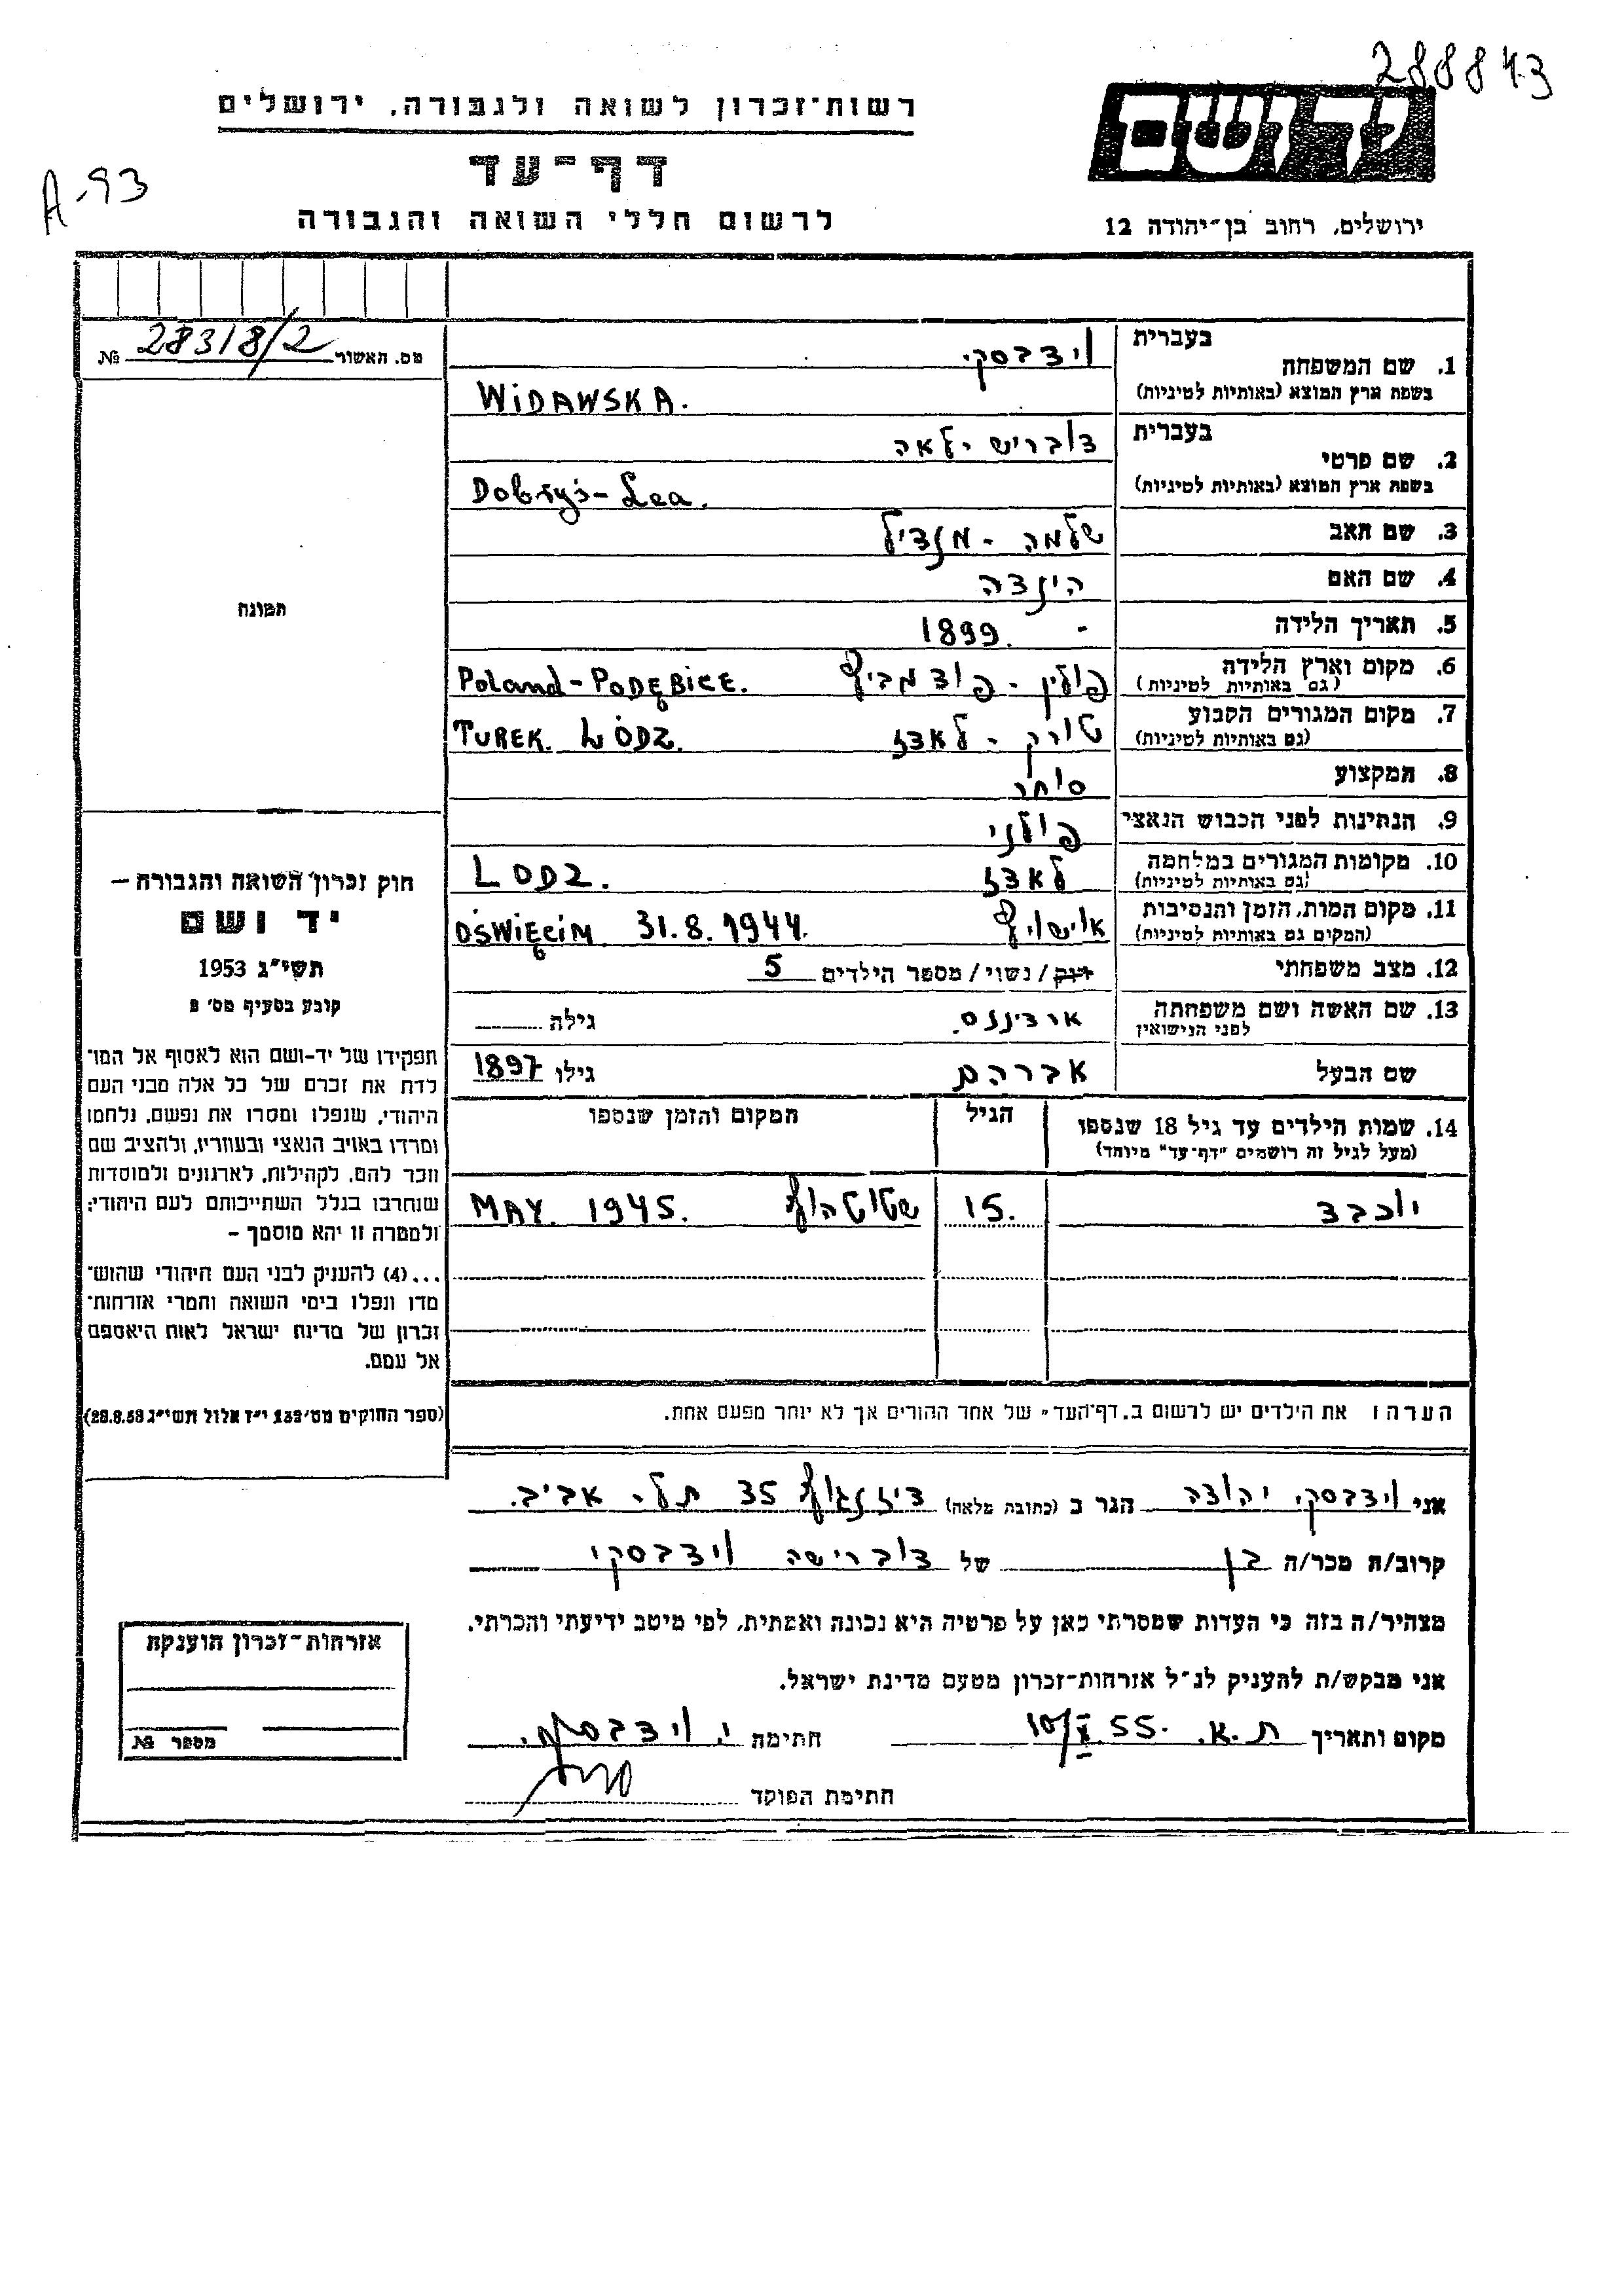 288843
רשות־זכרון לשואה ולגבורה, ירושלים
דף־עד
A-93
לרשום חללי השואה והגבורה
ירושלים, רחוב בן־יהודה 12
מס. האשור 28318/2 №
תמונה
1. שם המשפחה
בעברית וידבסקי.
בשפת ארץ המוצא (באותיות לטיניות) WIDAWSKA.
2. שם פרטי
בעברית דובריש - לאה
בשפת ארץ המוצא (באותיות לטיניות) Dobryś - Lea.
3. שם האב שלמה - מנדיל
4. שם האם הינדה
5. תאריך הלידה - 1899.
6. מקום וארץ הלידה פולין - פודמביץ Poland - PODĘBICE.
(גם באותיות לטיניות)
7. מקום המגורים הקבוע טורק - לאדז TUREK. ŁÓDZ.
(גם באותיות לטיניות)
8. המקצוע סוחר
9. הנתינות לפני הכבוש הנאצי פולני
10. מקומות המגורים במלחמה לאדז LODZ.
(גם באותיות לטיניות)
11. מקום המות, הזמן והנסיבות אושויץ OŚWIĘCIM 31.8.1944.
(המקום גם באותיות לטיניות)
12. מצב משפחתי רווק / נשוי / מספר הילדים 5
13. שם האשה ושם משפחתה גילה
לפני הנישואין
שם הבעל אברהם גילו 1897
14. שמות הילדים עד גיל 18 שנספו הגיל המקום והזמן שנספו
(מעל לגיל זה רושמים "דף־עד" מיוחד)
יוכבד 15. שטוטהוף MAY. 1945.
הערה: את הילדים יש לרשום ב"דף־העד" של אחד ההורים אך לא יותר מפעם אחת.
חוק זכרון השואה והגבורה —
יד ושם
תשי"ג 1953
קובע בסעיף מס' 2
תפקידו של יד-ושם הוא לאסוף אל המו־
לדת את זכרם של כל אלה מבני העם
היהודי, שנפלו ומסרו את נפשם, נלחמו
ומרדו באויב הנאצי ובעוזריו, ולהציב שם
וזכר להם, לקהילות, לארגונים ולמוסדות
שנחרבו בגלל השתייכותם לעם היהודי;
ולמטרה זו יהא מוסמך —
...(4) להעניק לבני העם היהודי שהוש־
מדו ונפלו בימי השואה והמרי אזרחות־
זכרון של מדינת ישראל לאות היאספם
אל עמם.
(ספר החוקים מס' 132 י"ז אלול תשי"ג 28.8.53)
אני וידבסקי יהודה הגר ב (כתובת מלאה) דיזנגוף 35 תל-אביב.
קרוב/ה מכר/ה בן של דוברישה וידבסקי
מצהיר/ה בזה כי העדות שמסרתי כאן על פרטיה היא נכונה ואמתית, לפי מיטב ידיעתי והכרתי.
אני מבקש/ת להעניק לנ"ל אזרחות-זכרון מטעם מדינת ישראל.
מקום ותאריך ת.א. 10/X.55 חתימה י. וידבסקי.
חתימת הפוקד
אזרחות-זכרון הוענקה
מספר №